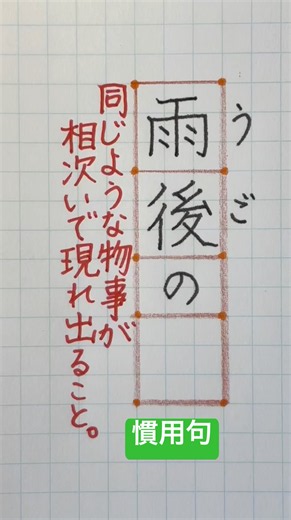 雨後の
うご
同じような物事が
相次いで現れ出ること。
慣用句